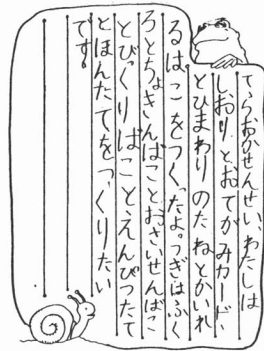 てらおかせんせい、わたしは
しおりとおてがみカード、
とひまわりのたねとかいれ
るはこをつくったよ。つぎはふく
ろとちょきんばことおさいせんばこ
とびっくりばことえんぴつたて
とほんたてをつくりたい
です。